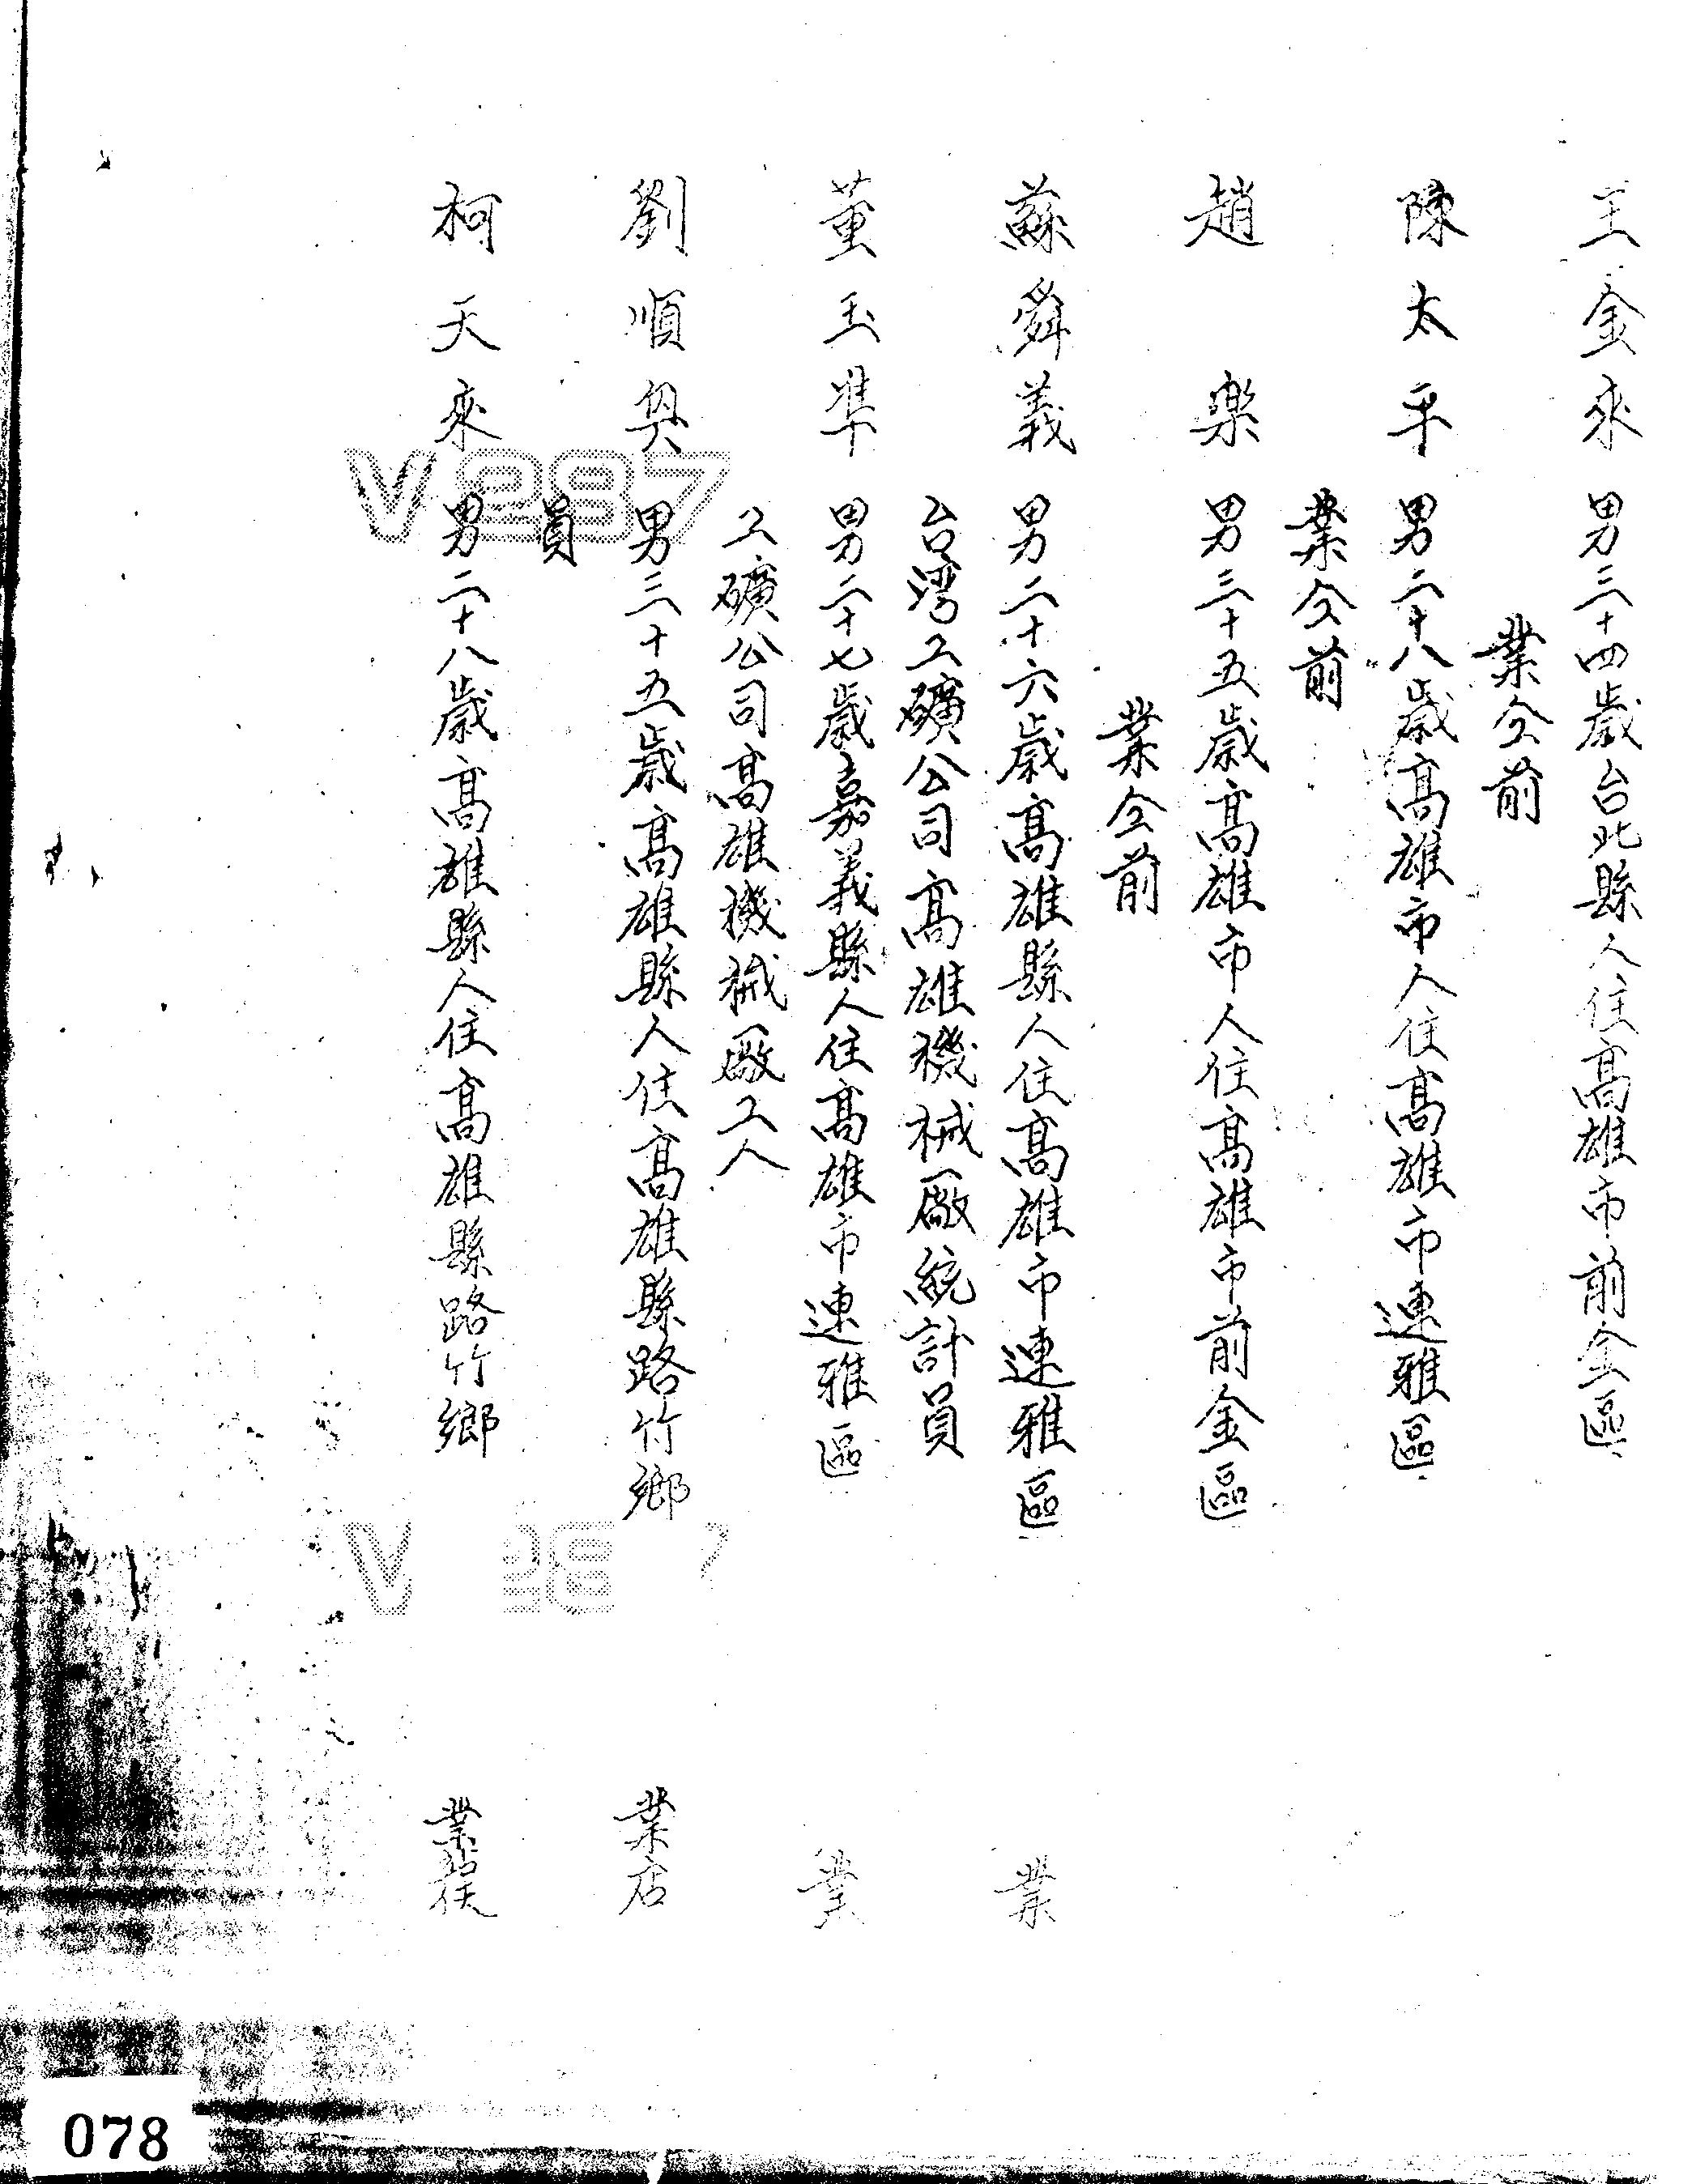 王金來 男三十四歲台北縣人住高雄市前金區
業仝前
陳太平 男二十八歲高雄市人住高雄市連雅區
業仝前
趙 楽 男三十五歲高雄市人住高雄市前金區
業仝前
蘇舜義 男二十六歲高雄縣人住高雄市連雅區 業
台湾工礦公司高雄機械廠統計員
董玉準 男二十七歲嘉義縣人住高雄市連雅區 業
工礦公司高雄機械廠工人
劉順 男三十五歲高雄縣人住高雄縣路竹鄉 業店
員
柯天來 男二十八歲高雄縣人住高雄縣路竹鄉 業
V 287
078